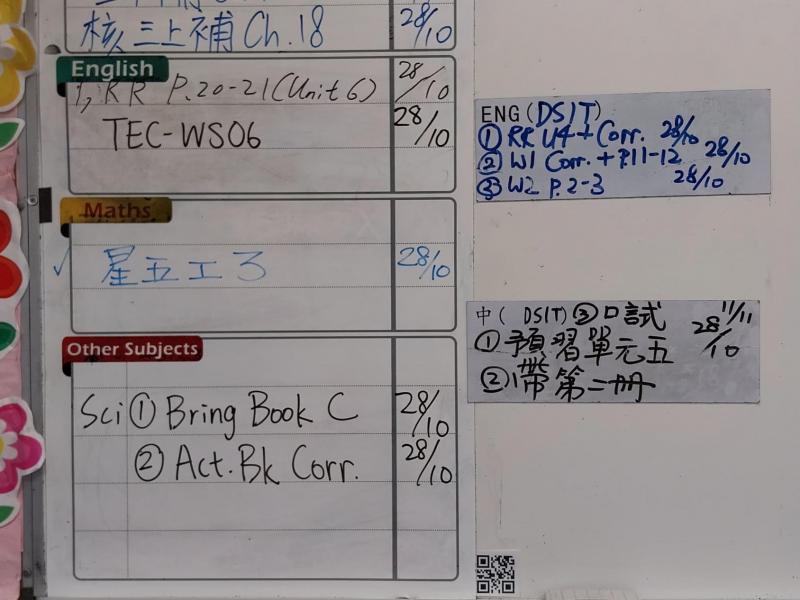 核三上補 Ch.18 28/10
English
1, RR P.20-21 (Unit 6) 28/10
TEC-WS06 28/10
Maths
星五工3 28/10
Other Subjects
Sci ① Bring Book C 28/10
② Act. Bk Corr. 28/10
ENG (DSIT)
① RR U4 + Corr. 28/10
② W1 Corr. + P.11-12 28/10
③ W2 P.2-3 28/10
中 ( DSIT) ③口試 11/11
①預習單元五 28/10
②帶第二册